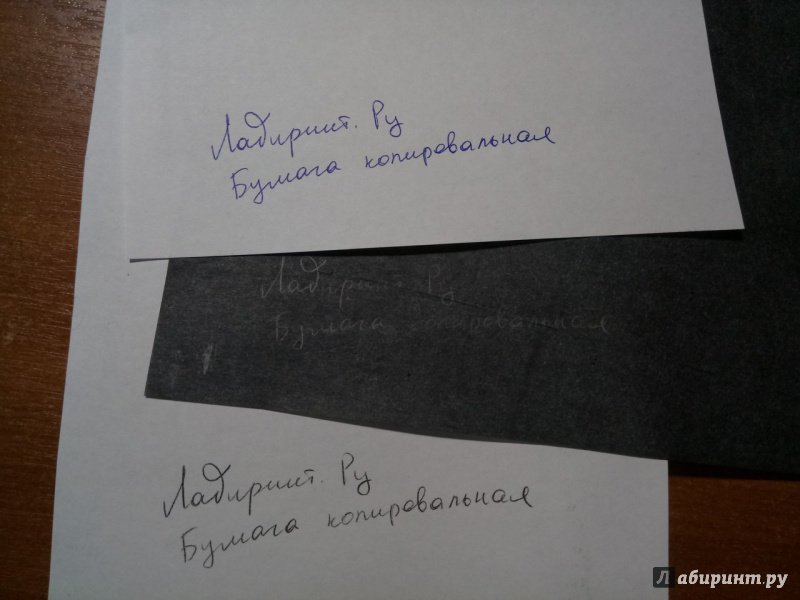 Лабиринт. Ру
Бумага копировальная
Лабиринт. Ру
Бумага копировальная
Лабиринт. Ру
Бумага копировальная
Лабиринт.ру